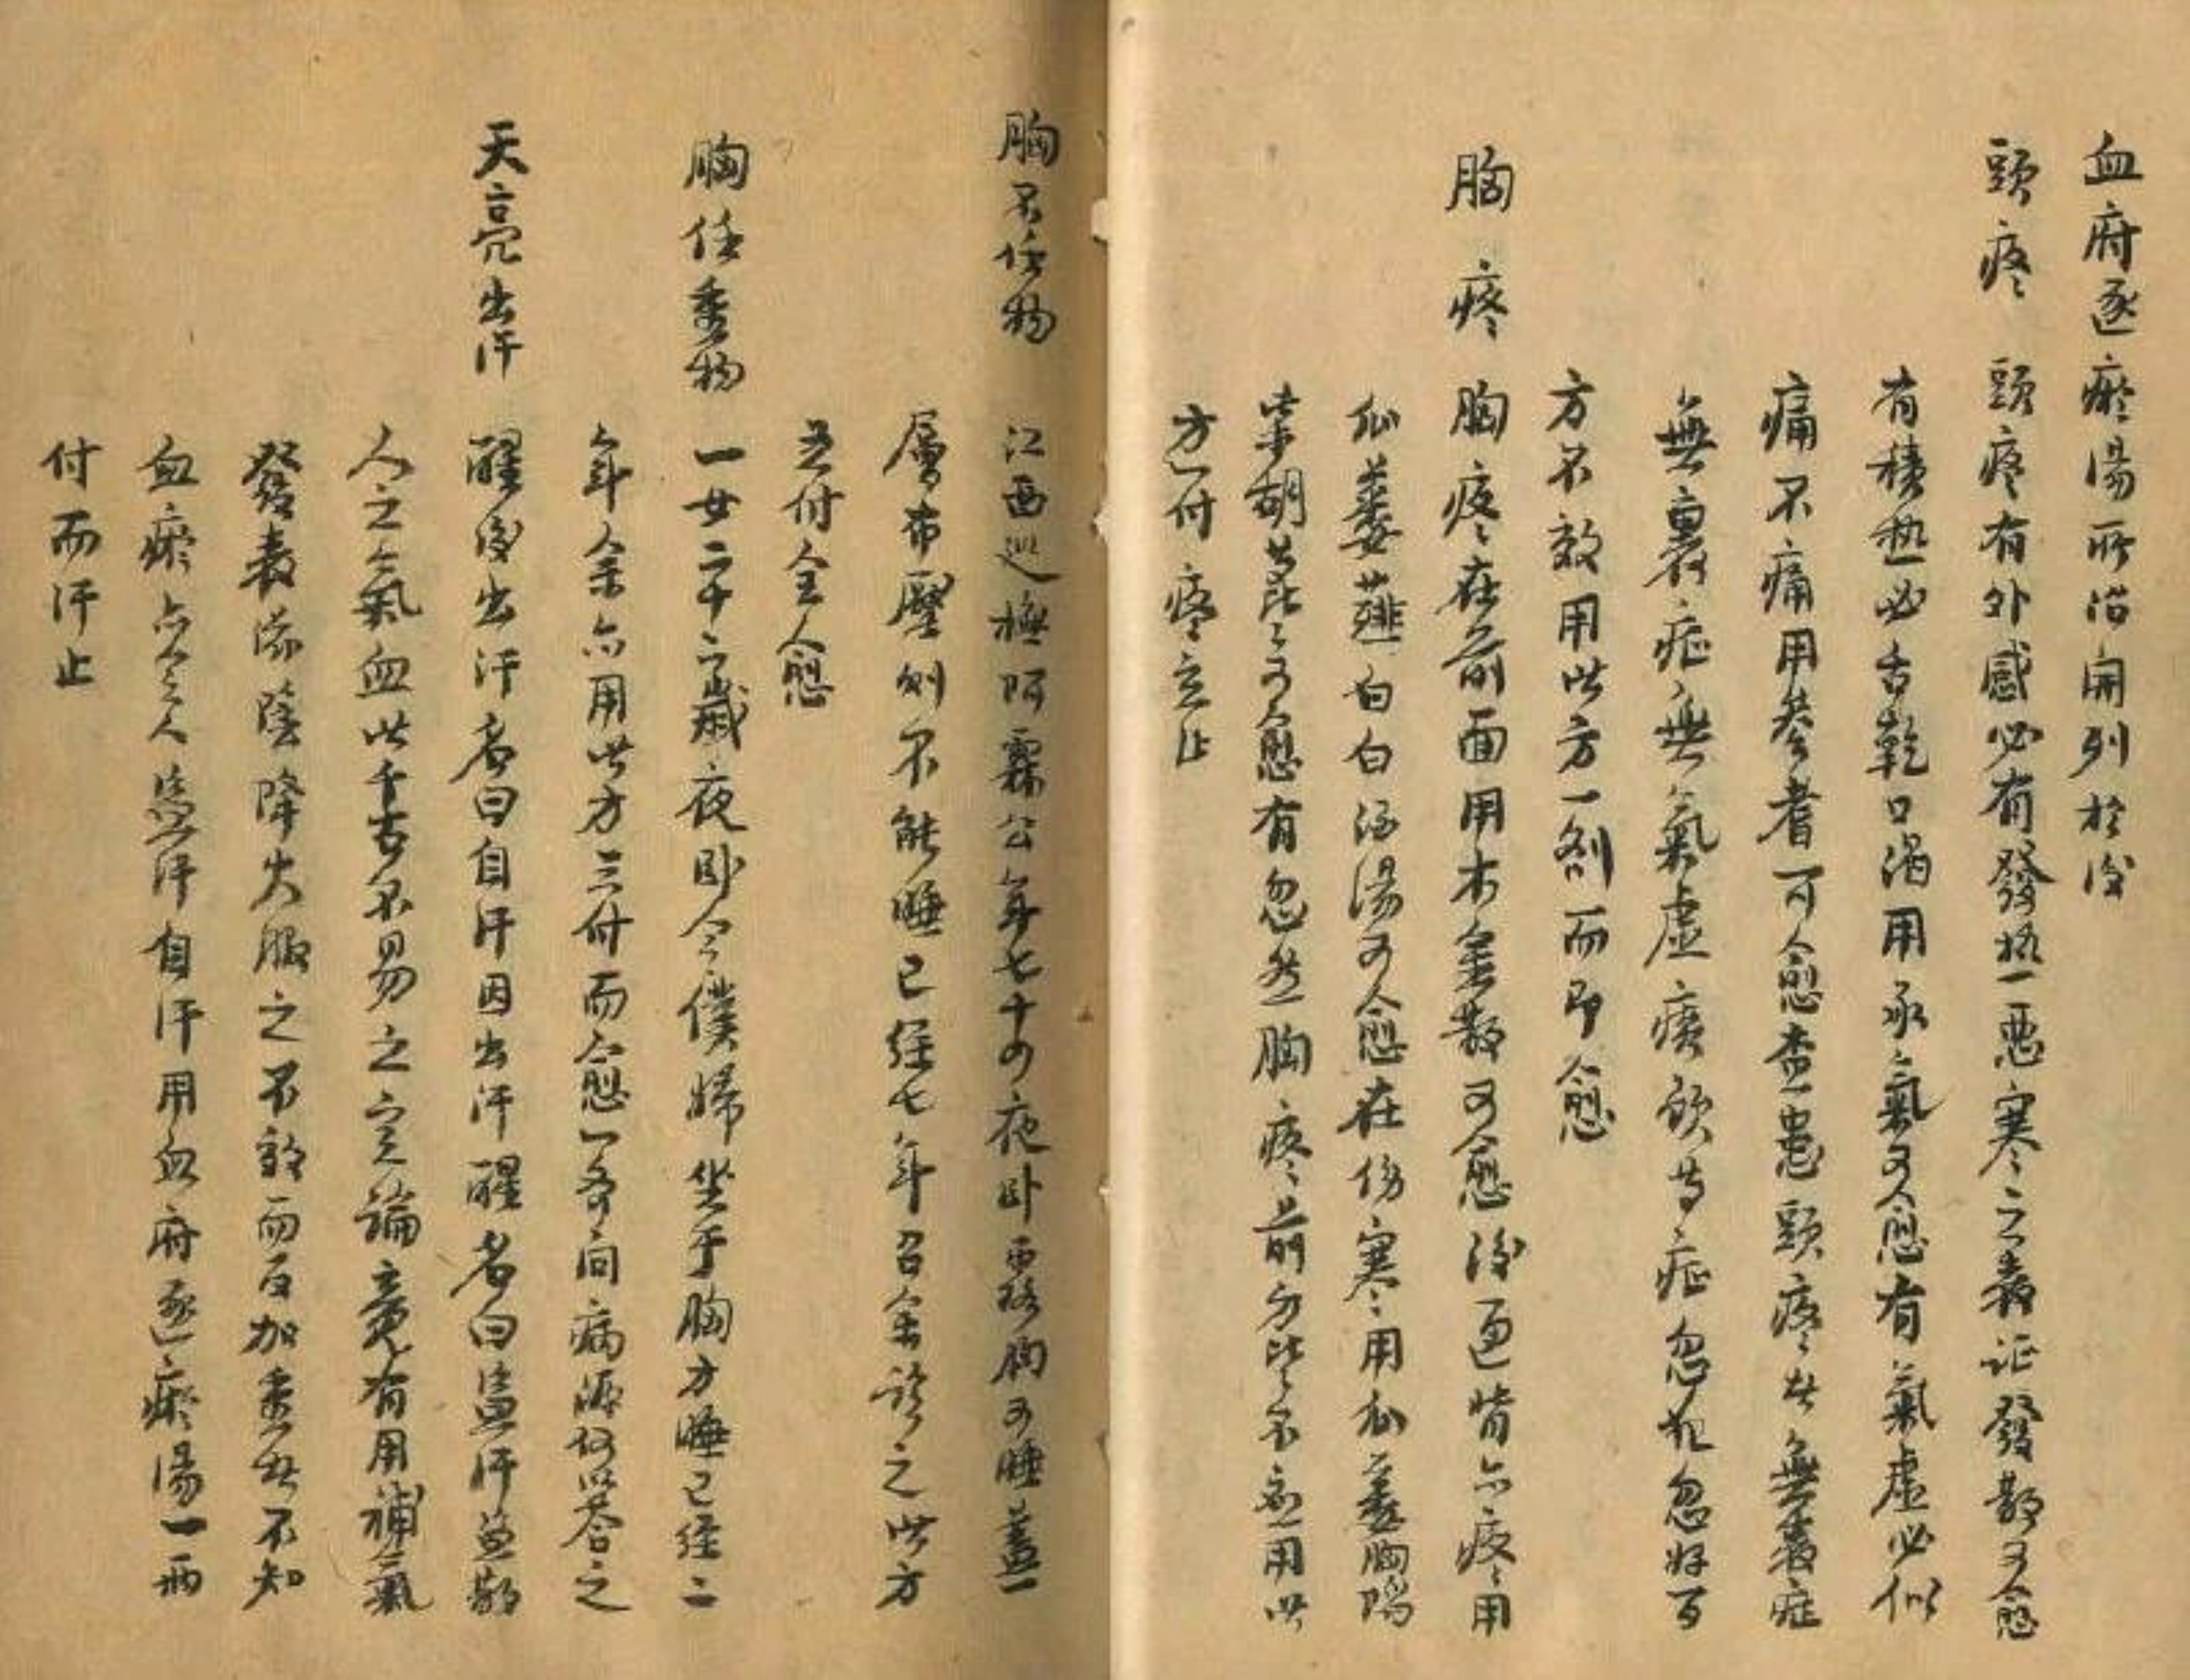 血府逐瘀湯所治開列於後
頭疼 頭疼有外感必有發热惡寒之表证發散可愈
有積热必舌乾口渴用承氣可愈有氣虛必似
痛不痛用參耆可愈查患頭疼者無表症
無裏症無氣虛痰飲等症忽犯忽好百
方不效用此方一劑而即愈
胸疼 胸疼在前面用木金散可愈後通背亦疼用
瓜蔞薤白白酒湯可愈在伤寒用瓜蔞胸陷
柴胡等皆可愈有忽然胸疼前方皆不应用此
方一付疼立止
胸不任物 江西巡撫阿霖公年七十四夜卧露胸可睡蓋一
層布壓則不能睡已经七年召余診之此方
五付全愈
胸任重物 一女二十二歲夜卧令僕婦坐于胸方睡已经二
年余亦用此方三付而愈一齐问病源何以答之
天亮出汗 醒後出汗名曰自汗因出汗醒名曰盜汗盖散
人之氣血此千古不易之定論竟有用補氣
發表滋陰降火服之不效而反加重者不知
血瘀亦令人盜汗自汗用血府逐瘀湯一两
付而汗止